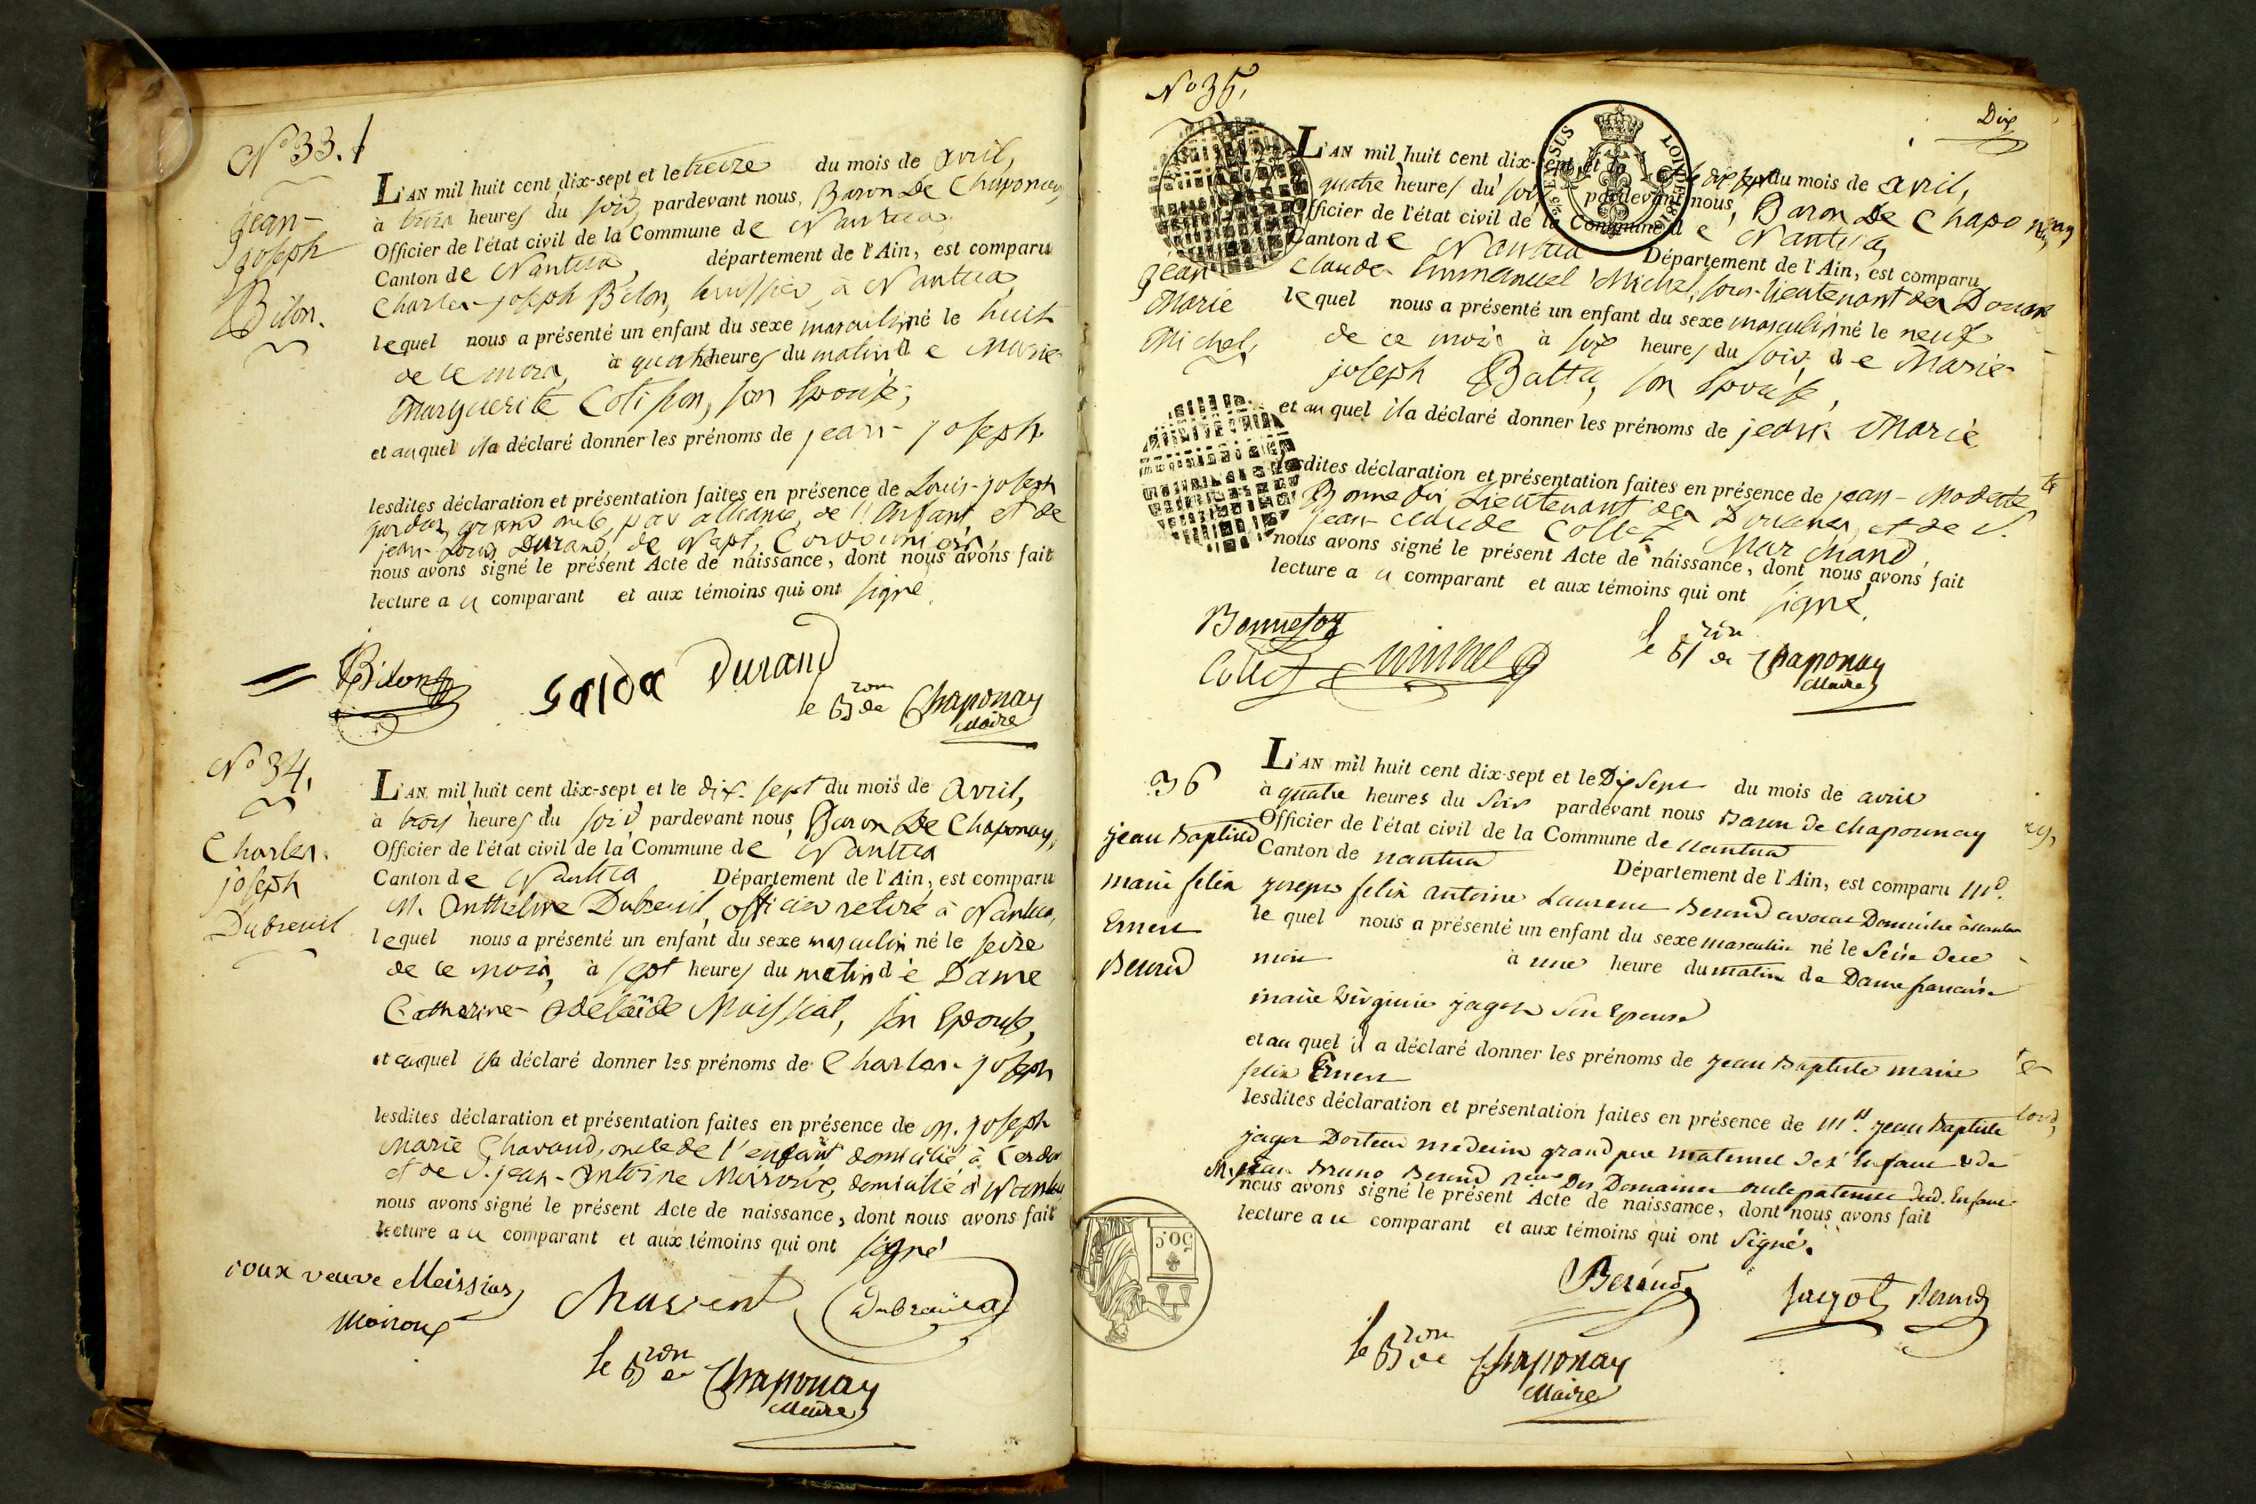 No 33.
jean-
joseph
Bilon.
L'AN mil huit cent dix-sept et le treize du mois de avril,
à trois heures du soir, pardevant nous, Baron De Chaponay,
Officier de l'état civil de la Commune de Nantua
Canton de Nantua, département de l'Ain, est comparu
Charles-joseph Bilon, huissier, à Nantua,
lequel nous a présenté un enfant du sexe masculin, né le huit
de ce mois, à quatre heures du matin de Marie
Marguerite Cotisson, son Epouse,
et auquel il a déclaré donner les prénoms de jean-joseph
lesdites déclaration et présentation faites en présence de Louis-joseph
grand oncle, par alliance, de l'Enfant, et de
jean-Louis Durand, de Nept, Cordonnier,
nous avons signé le présent Acte de naissance, dont nous avons fait
lecture au comparant et aux témoins qui ont signé.
Bilon Durand
le Bron de Chaponay
Maire
No 34.
Charles-
joseph
Dubreuil
L'AN mil huit cent dix-sept et le dix-sept du mois de avril,
à trois heures du soir pardevant nous, Baron De Chaponay,
Officier de l'état civil de la Commune de Nantua
Canton de Nantua Département de l'Ain, est comparu
M. Anthelme Dubreuil, officier retiré à Nantua,
lequel nous a présenté un enfant du sexe masculin né le seize
de ce mois, à sept heures du matin de Dame
Catherine-Adelaïde Maissiat, son Epouse,
et auquel il a déclaré donner les prénoms de Charles-joseph
lesdites déclaration et présentation faites en présence de M. joseph
Marie Chavand, oncle de l'enfant domicilié à Cerdon
et de S. jean-Antoine domicilié à Nantua
nous avons signé le présent Acte de naissance, dont nous avons fait
lecture au comparant et aux témoins qui ont signé
roux veuve Meissiat
Dubreuil
le Bron de Chaponay
Maire
No 35.
Dix
jean
Marie
Michel,
L'AN mil huit cent dix-sept et le dix sept du mois de avril,
quatre heures du soir pardevant nous, Baron De Chaponay
Officier de l'état civil de la Commune de Nantua,
Canton de Nantua Département de l'Ain, est comparu
Claude Emmanuel Michel, sous-lieutenant des Douanes
lequel nous a présenté un enfant du sexe masculin né le neuf
de ce mois à six heures du soir, de Marie-
joseph Batta, son Epouse,
et auquel il a déclaré donner les prénoms de jean Marie
lesdites déclaration et présentation faites en présence de jean-Modeste
Bonnefoi Lieutenant des Douanes, et de S.
jean-claude Collet Marchand,
nous avons signé le présent Acte de naissance, dont nous avons fait
lecture au comparant et aux témoins qui ont signé.
Bonnefoy
Collet Michel
le Bron de Chaponay
Maire
36
jean Baptiste
marie felix
Ernest
Beroud
L'AN mil huit cent dix-sept et le Dix Sept du mois de avril
à quatre heures du soir pardevant nous Baron de chaponnay
Officier de l'état civil de la Commune de nantua
Canton de nantua Département de l'Ain, est comparu Mr.
joseph felix antoine Laurent Beroud avocat Domicilié à Nantua
lequel nous a présenté un enfant du sexe masculin né le Seize de ce
mois à une heure du matin de Dame francoise
marie Virginie jagot Son Epouse
et auquel il a déclaré donner les prénoms de jean Baptiste marie
felix Ernest
lesdites déclaration et présentation faites en présence de Mr. jean Baptiste
jagot Docteur medecin grand pere maternel de l'Enfant & de
M. jean Bruno Beroud Des Domaines oncle paternel dud. Enfant
nous avons signé le présent Acte de naissance, dont nous avons fait
lecture au comparant et aux témoins qui ont Signé.
50c
Beroud
Jagot Beroud
le Bron de Chaponay
Maire